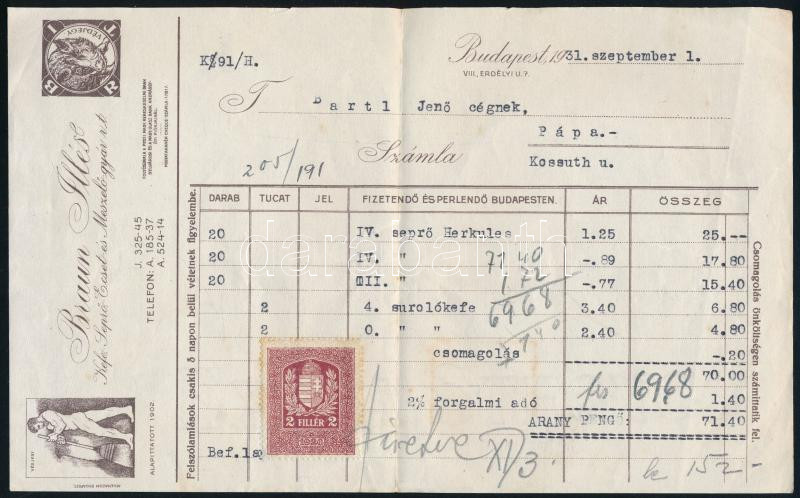 VÉDJEGY
B R J I
Braun Illés
Kefe- Seprő- Ecset- és Meszelő-gyár r.t.
TELEFON: J. 325-45
A. 185-37
A. 524-14
ALAPITTATOTT 1902.
K791/H.
Budapest, 1931. szeptember 1.
VIII., ERDÉLYI U. 7.
T Bartl Jenő cégnek,
Pápa.-
Kossuth u.
205/191
Számla
Felszólamlások csakis 8 napon belül vétetnek figyelembe.
DARAB TUCAT JEL FIZETENDŐ ÉS PERLENDŐ BUDAPESTEN. ÁR ÖSSZEG
20 IV. seprő Herkules 1.25 25.--
20 IV. " -.89 17.80
20 III. " -.77 15.40
2 4. surolókefe 3.40 6.80
2 0. " " 2.40 4.80
csomagolás -.20
70.00
2% forgalmi adó 1.40
ARANY PENGŐ: 71.40
7140
172
6968
6968
XI/3.
152-
2 FILLÉR 2
Csomagolás önköltségen számittatik fel.
darabanth